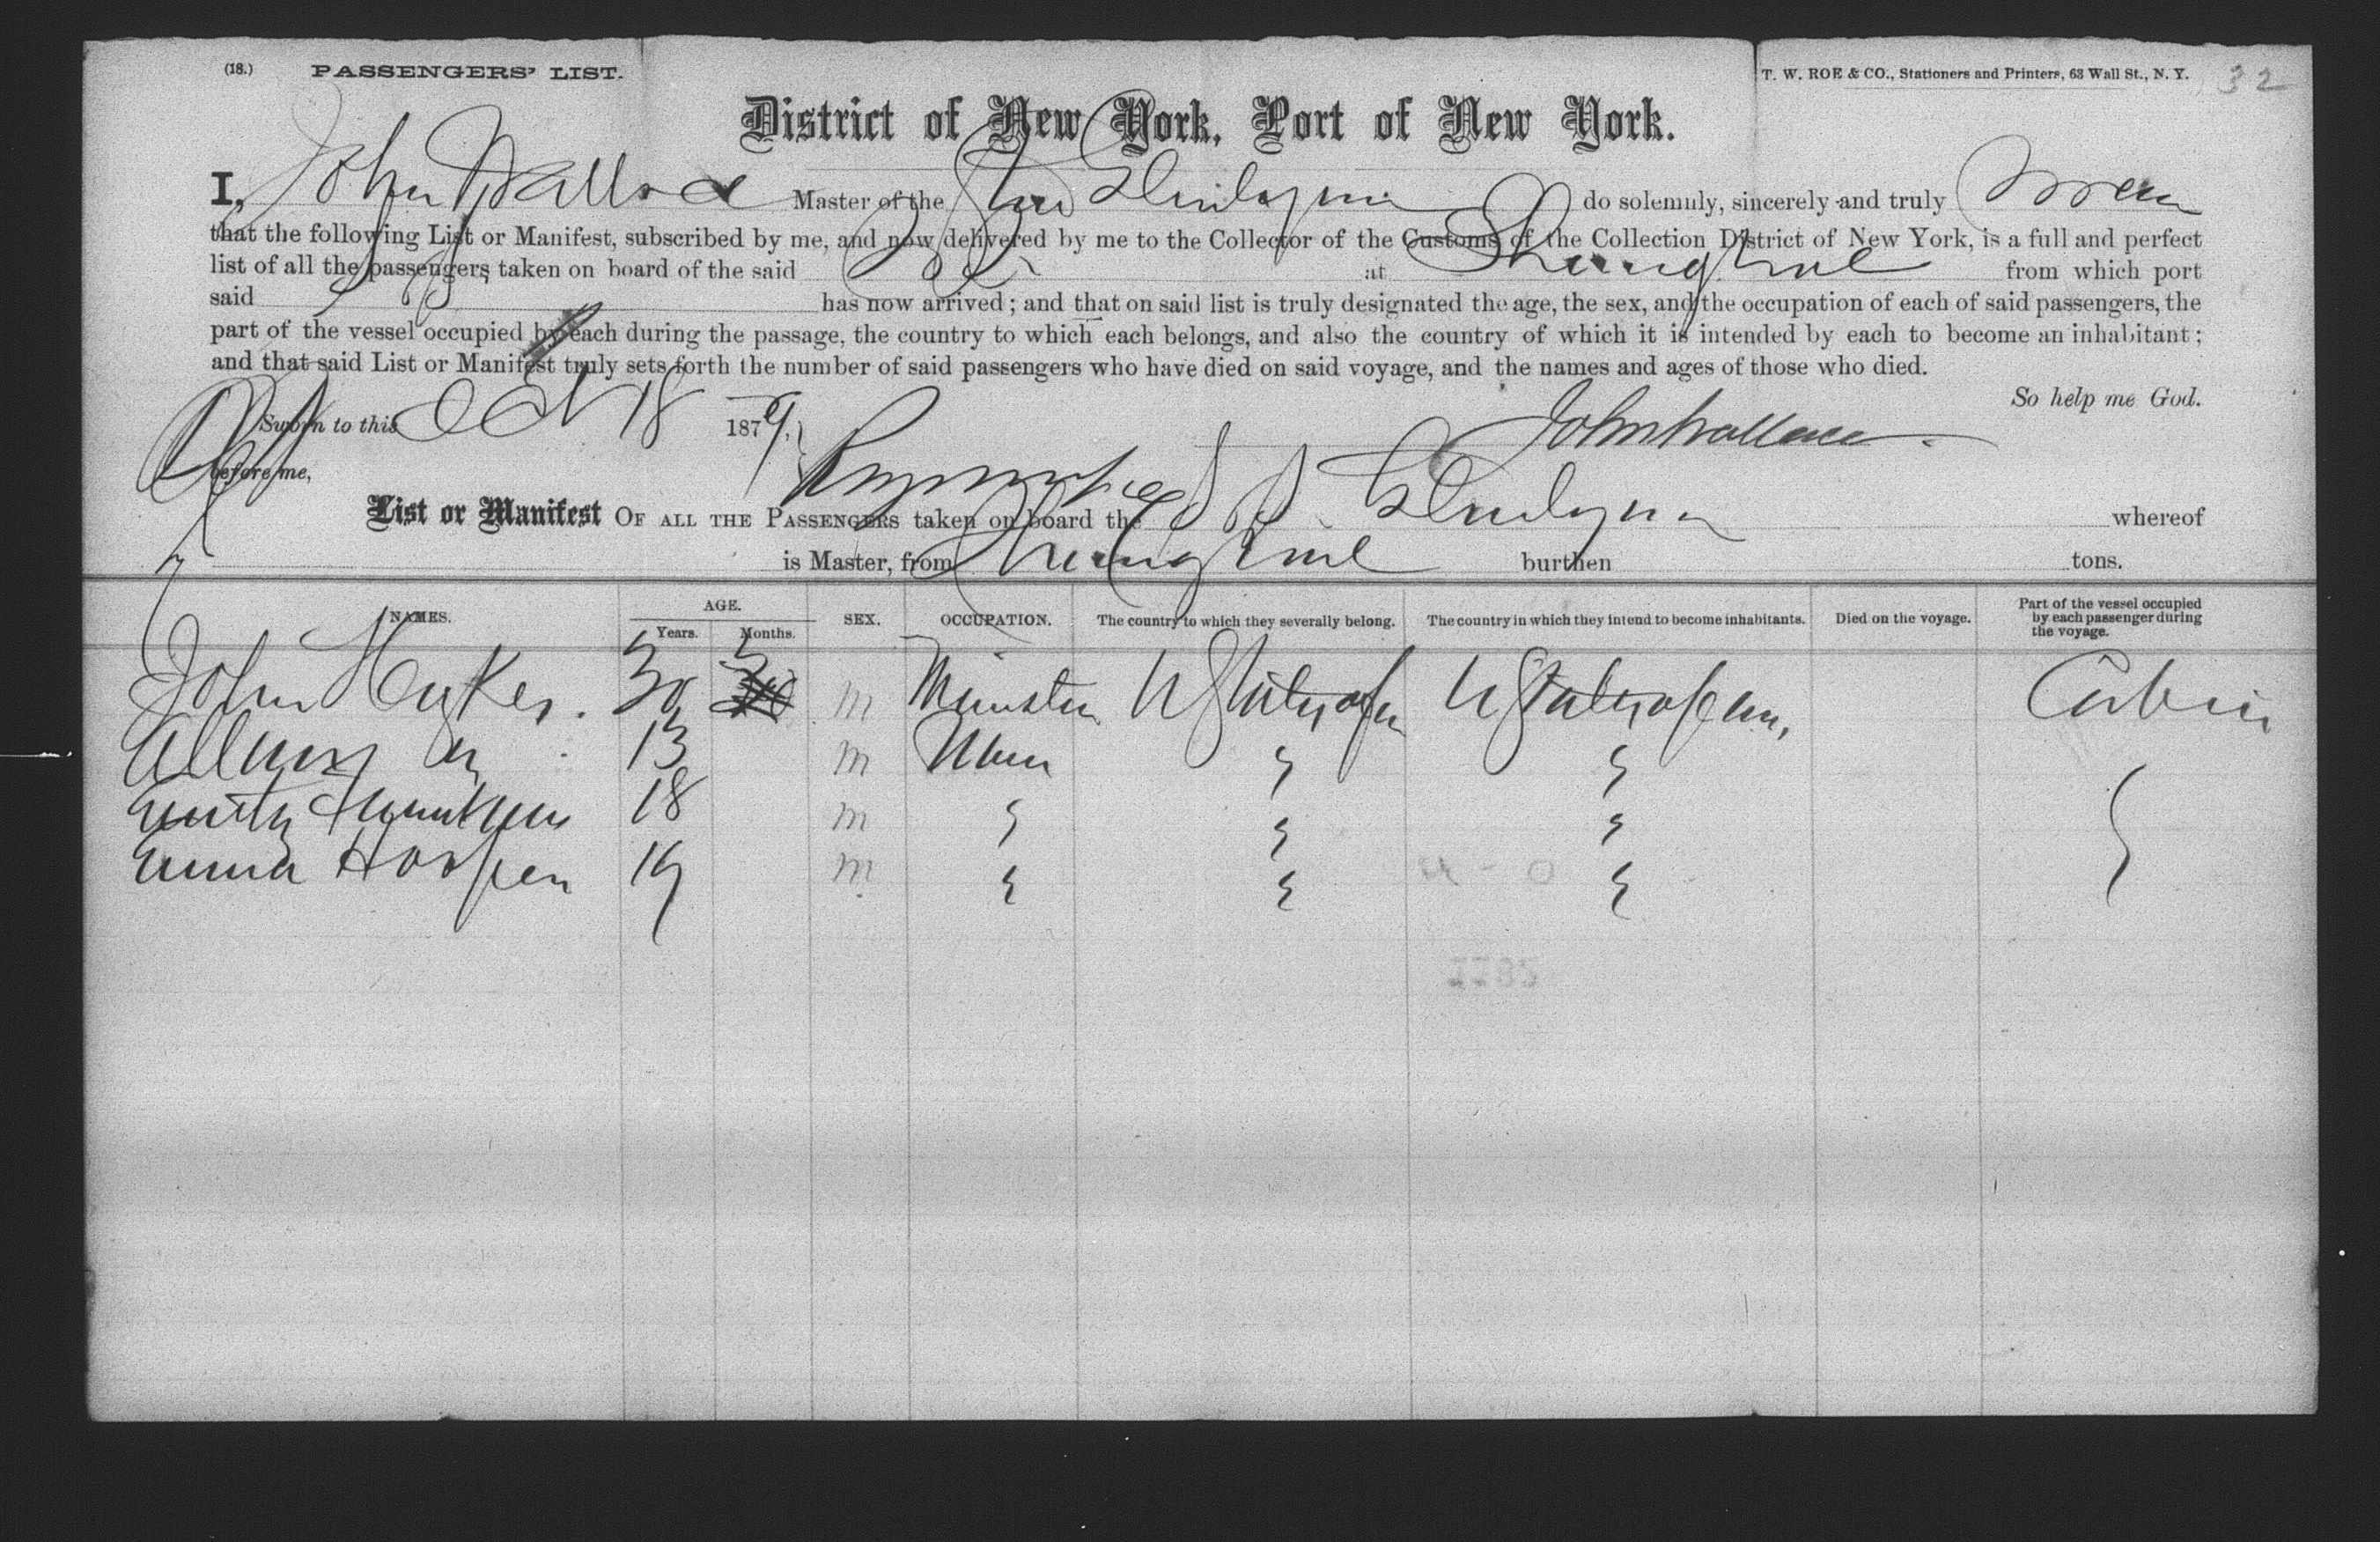 (18.) PASSENGERS' LIST. T. W. ROE & CO., Stationers and Printers, 63 Wall St., N. Y. 32
District of New York, Port of New York.
I, John Wallace Master of the do solemnly, sincerely and truly Swear
that the following List or Manifest, subscribed by me, and now delivered by me to the Collector of the Customs of the Collection District of New York, is a full and perfect
list of all the passengers taken on board of the said at Shanghai from which port
said has now arrived; and that on said list is truly designated the age, the sex, and the occupation of each of said passengers, the
part of the vessel occupied by each during the passage, the country to which each belongs, and also the country of which it is intended by each to become an inhabitant;
and that said List or Manifest truly sets forth the number of said passengers who have died on said voyage, and the names and ages of those who died.
So help me God.
Sworn to this Oct 18 1879, John Wallace
before me,
List or Manifest OF ALL THE PASSENGERS taken on board the S. S. whereof
is Master, from Shanghai burthen tons.
NAMES. AGE. Years. Months. SEX. OCCUPATION. The country to which they severally belong. The country in which they intend to become inhabitants. Died on the voyage. Part of the vessel occupied by each passenger during the voyage.
John 30 m Minister U States of U States of Cabin
13 m
18 m
Anna 19 m